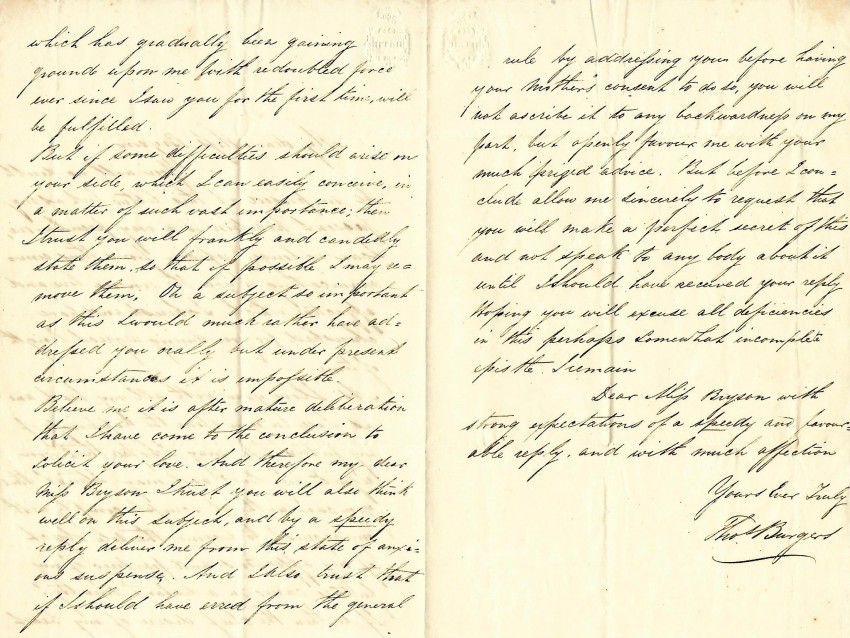 which has gradually been gaining
grounds upon me with redoubled force
ever since I saw you for the first time, will
be fulfilled.
But if some difficulties should arise on
your side, which I can easily conceive, in
a matter of such vast importance; then
I trust you will frankly and candidly
state them, so that if possible I may re=
move them, On a subject so important
as this I would much rather have ad=
dressed you orally but under present
circumstances it is impossible.
Believe me it is after mature deliberation
that I have come to the conclusion to
solicit your love. And therefore my dear
Miss Bryson I trust you will also think
well on this subject, and by a speedy
reply deliver me from this state of anxi=
ous suspense. And I also trust that
if I should have erred from the general
rule by addressing you before having
your Mother's consent to do so, you will
not ascribe it to any backwardness on my
part, but openly favour me with your
much prized advice. But before I con=
clude allow me sincerely to request that
you will make a perfect secret of this
and not speak to any body about it
until I should have received your reply
Hoping you will excuse all deficiencies
in this perhaps somewhat incomplete
epistle. I remain
Dear Miss Bryson with
strong expectations of a speedy and favour=
able reply. and with much affection
Yours Ever Truly
Thos Burgers